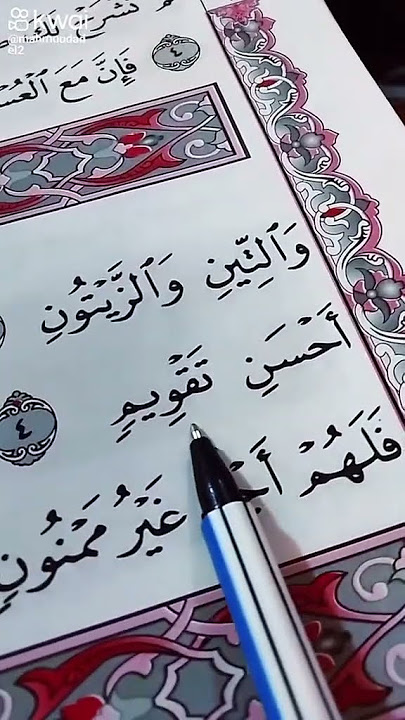 kwai
@mahmoudad
el2
نَشْرَحْ لَكَ
فَإِنَّ مَعَ ٱلْعُسْ
٤
وَٱلتِّينِ وَٱلزَّيْتُونِ
أَحْسَنِ تَقْوِيمٍ
٤
فَلَهُمْ أَجْ غَيْرُ مَمْنُونٍ